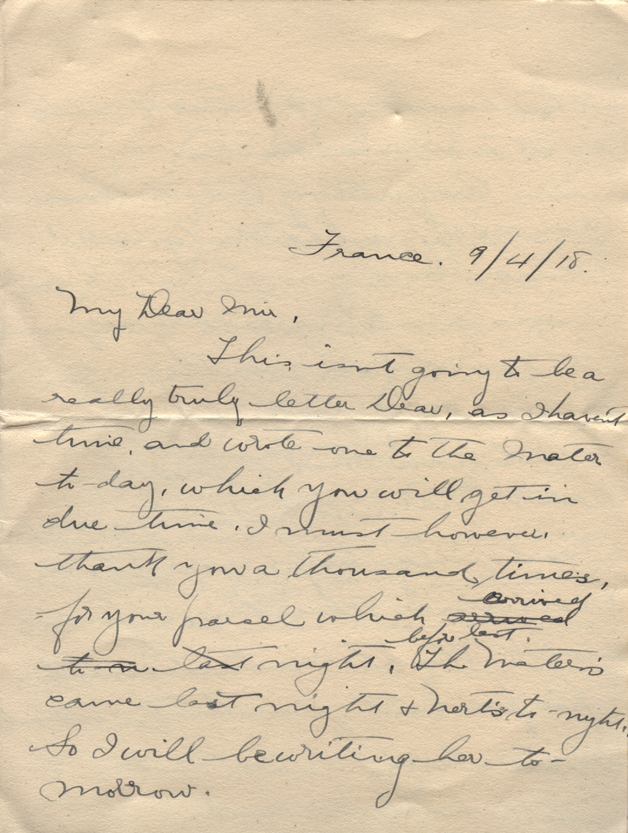 France. 9/4/18.
My Dear Mir,
This isn't going to be a
really truly letter Dear, as I haven't
time, and wrote one to the Mater
to-day, which you will get in
due time. I must however,
thank you a thousand times,
for your parsel which arrived
before last.
night. The Mater's
came last night & Nert's to-night.
So I will be writing her to-
morrow.